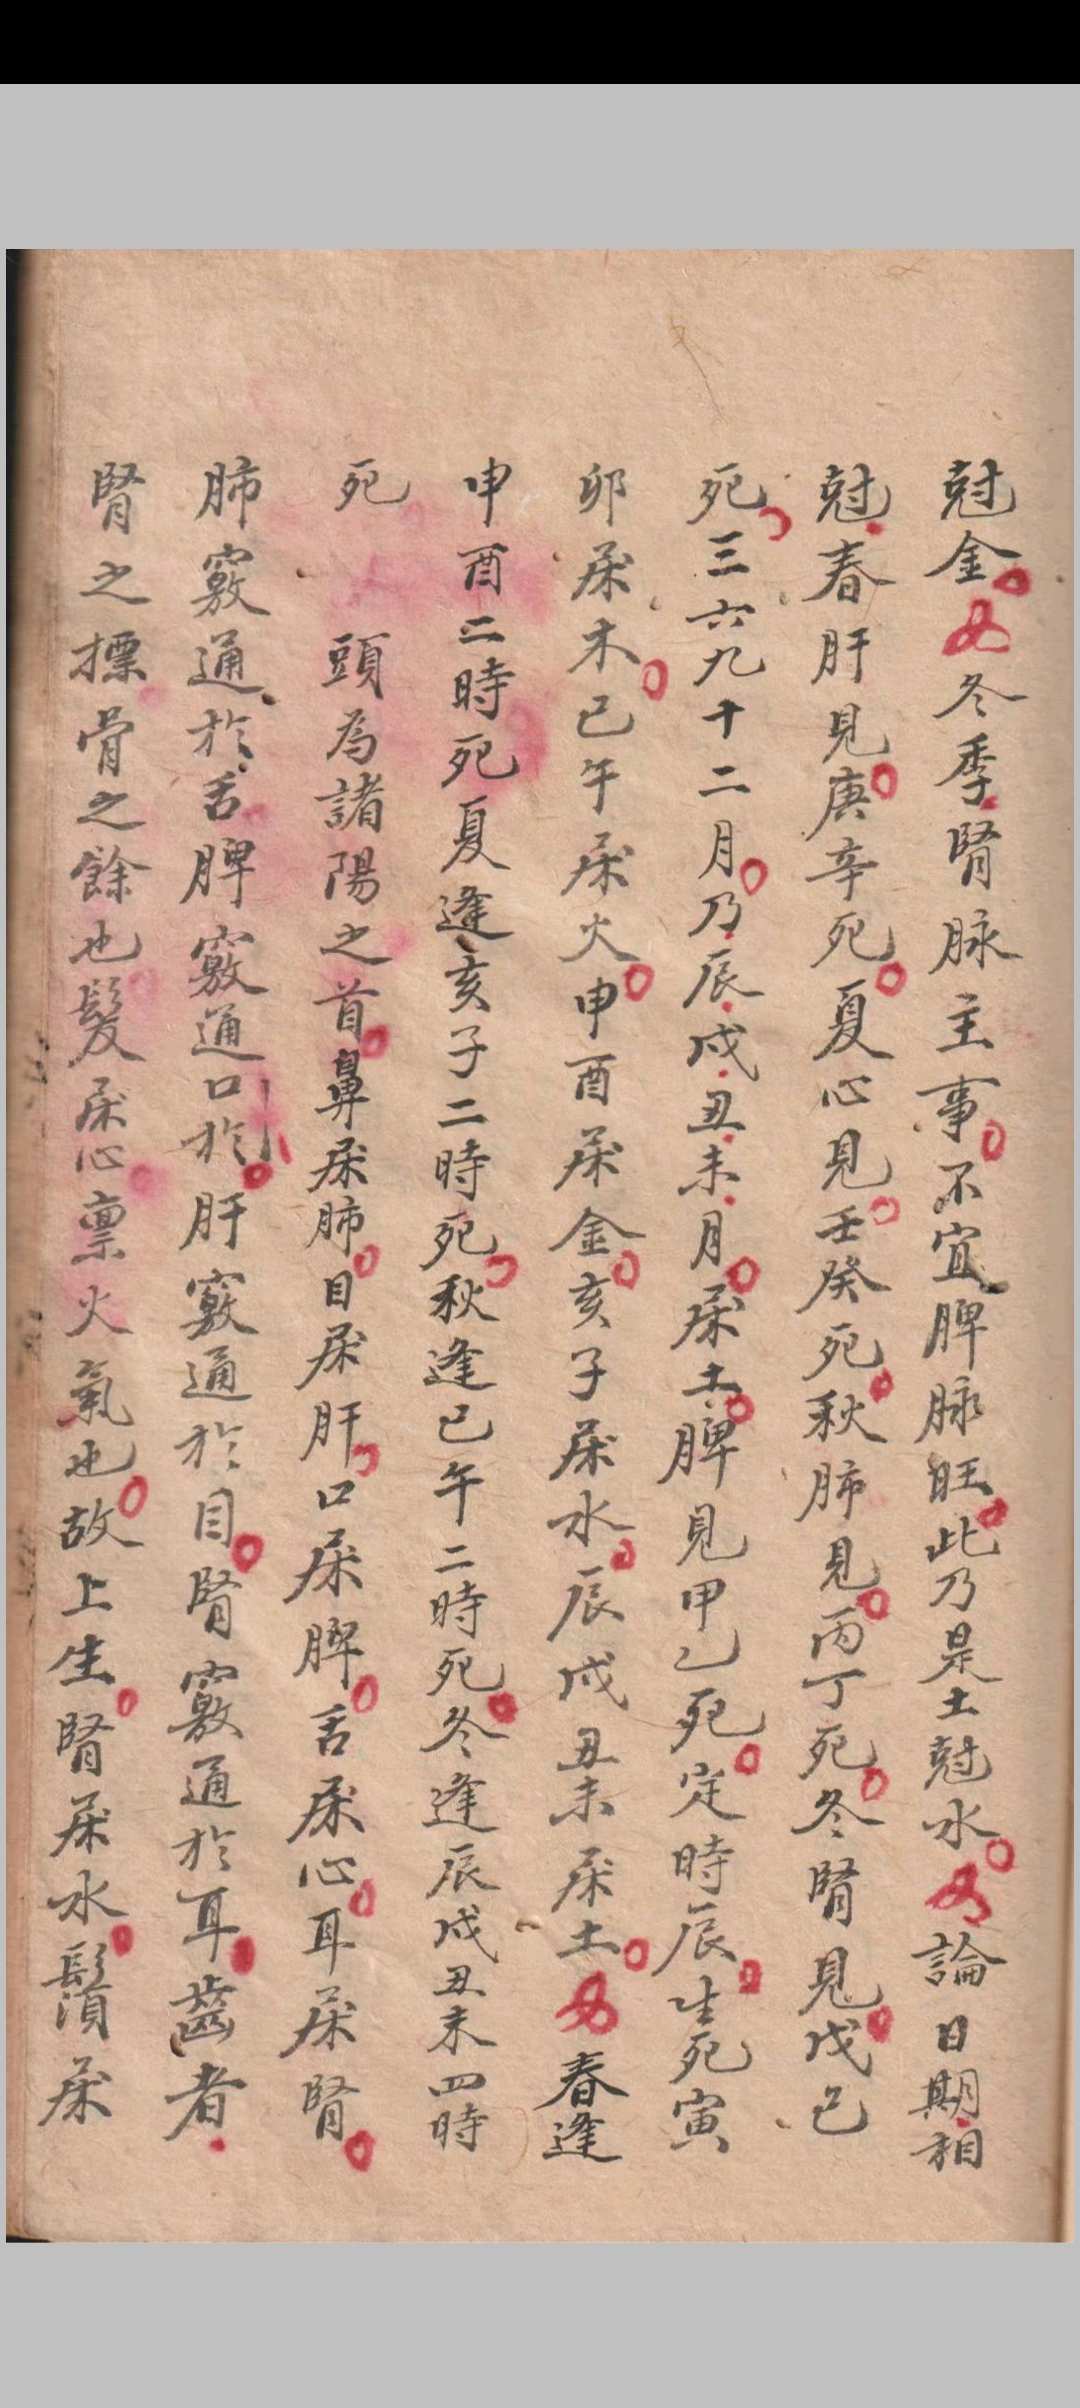 尅金又冬季腎脉主事不宜脾脉旺此乃是土尅水又論日期相
尅春肝見庚辛死夏心見壬癸死秋肺見丙丁死冬腎見戊己
死三六九十二月乃辰戍丑未月屎土脾見甲乙死定時辰生死寅
卯屎木己午屎火申酉屎金亥子屎水辰戍丑未屎土又春逢
申酉二時死夏逢亥子二時死秋逢己午二時死冬逢辰戍丑未四時
死 頭為諸陽之首鼻屎肺目屎肝口屎脾舌屎心耳屎腎
肺竅通於舌脾竅通口於肝竅通於目腎竅通於耳齒者
腎之摽骨之餘也髮屎心禀火氣也故上生腎屎水鬚屎